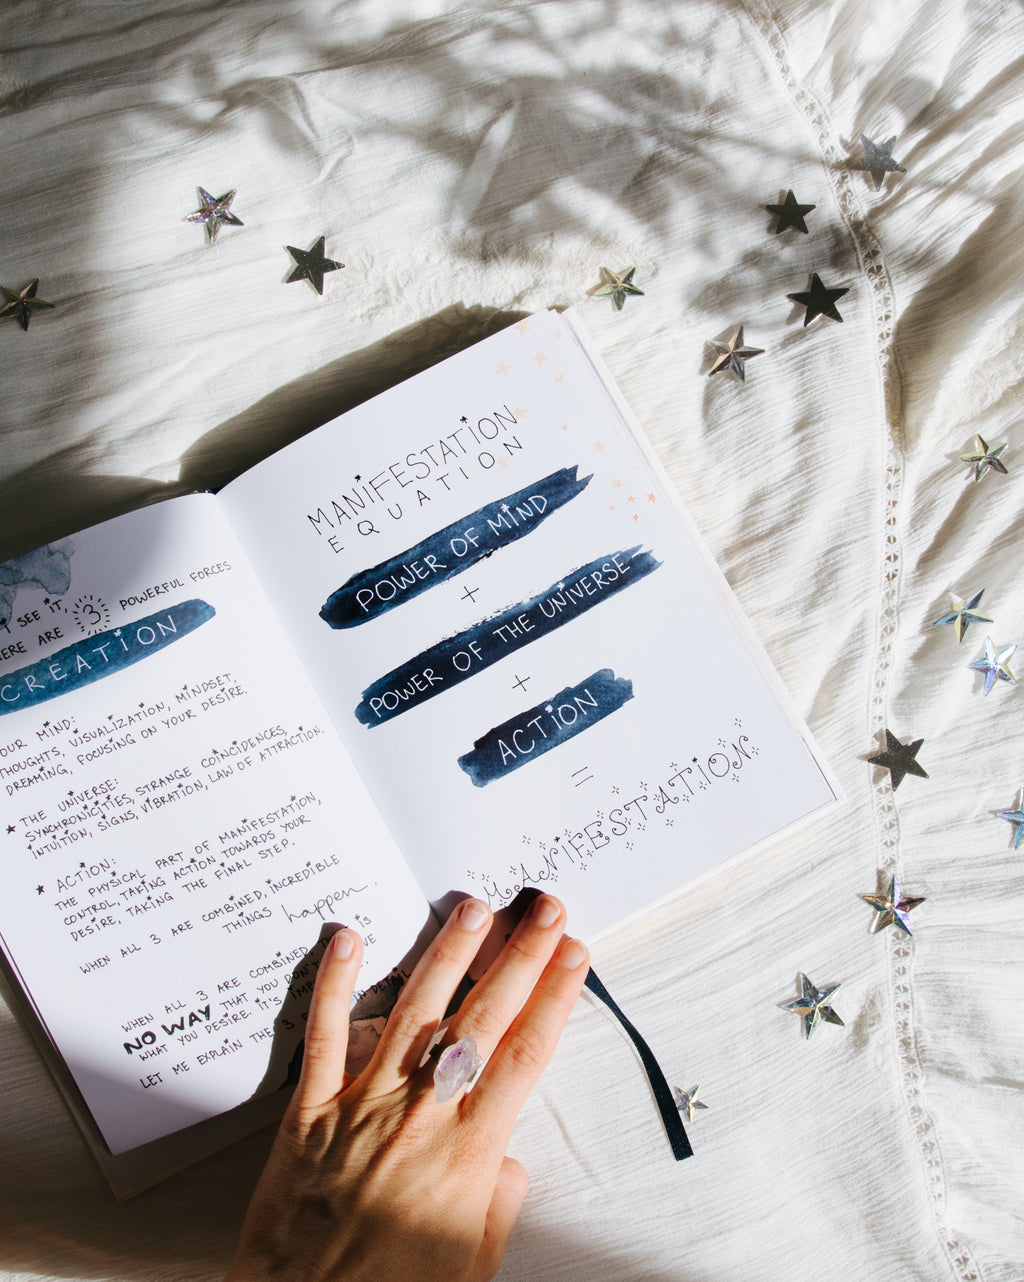 I SEE IT,
HERE ARE 3 POWERFUL FORCES
CREATION
OUR MIND:
THOUGHTS, VISUALIZATION, MINDSET,
DREAMING, FOCUSING ON YOUR DESIRE.
★ THE UNIVERSE:
SYNCHRONICITIES, STRANGE COINCIDENCES,
INTUITION, SIGNS, VIBRATION, LAW OF ATTRACTION.
★ ACTION:
THE PHYSICAL PART OF MANIFESTATION,
CONTROL, TAKING ACTION TOWARDS YOUR
DESIRE, TAKING THE FINAL STEP.
WHEN ALL 3 ARE COMBINED, INCREDIBLE
THINGS happen.
WHEN ALL 3 ARE COMBINED, IS
NO WAY THAT YOU DON'T
WHAT YOU DESIRE. IT'S
LET ME EXPLAIN THE 3 IN DETAIL
MANIFESTATION
EQUATION
POWER OF MIND
+
POWER OF THE UNIVERSE
+
ACTION
=
MANIFESTATION